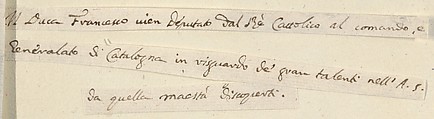 Il Duca Francesco vien Deputato dal Rè Cattolico al comando, e
Generalato di Catalogna in risguardo de' gran talenti nell' A. S.
da quella maestà discoperti.